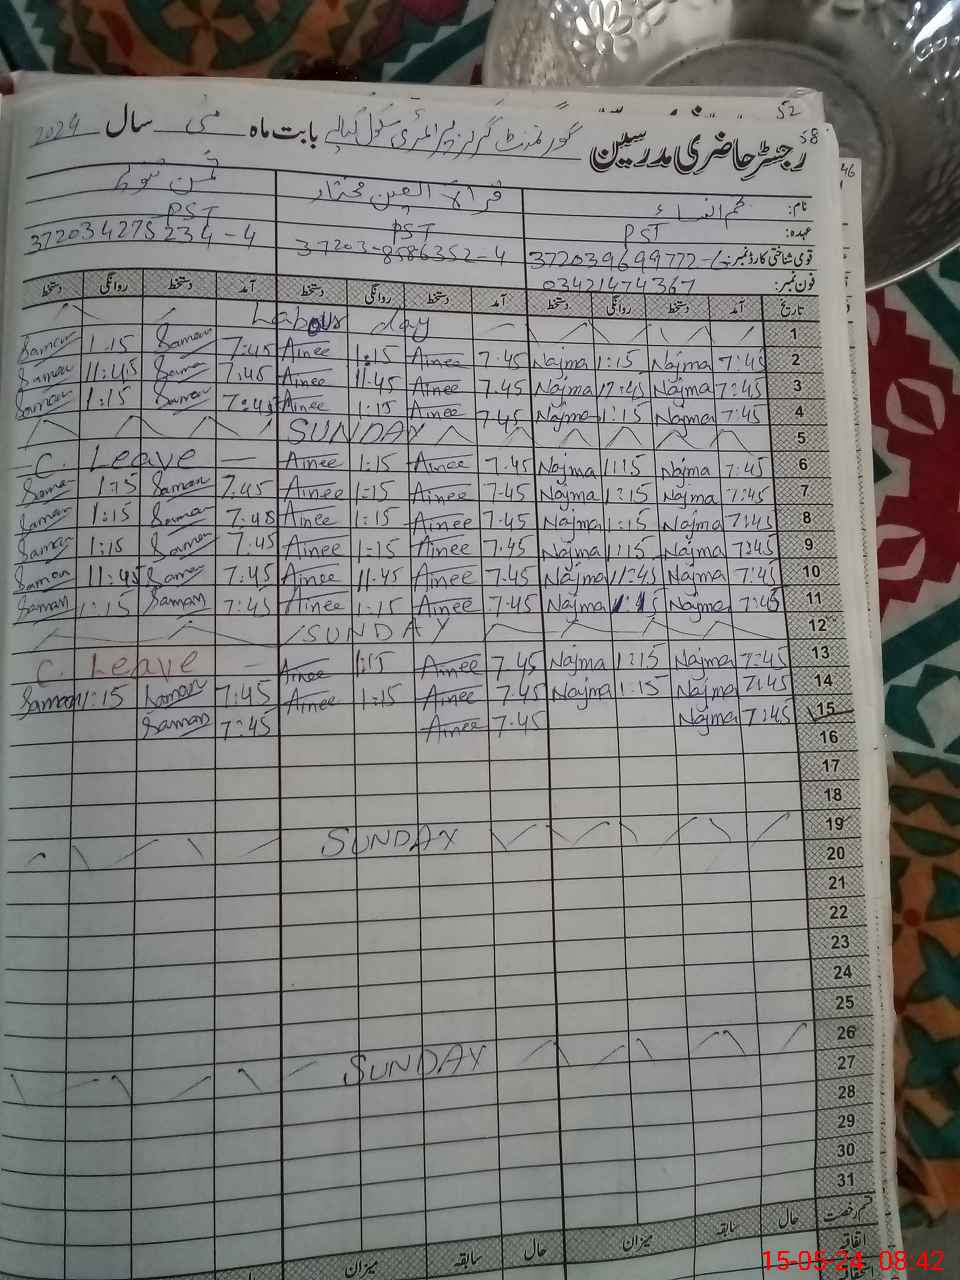 52
58
46
رجسٹر حاضری مدرسین گورنمنٹ گرلز پرائمری سکول بابت ماہ مئی سال 2024
نام: نجم النساء قرۃ العین مختار ثمن
عہدہ: PST PST PST
قومی شناختی کارڈ نمبر: 37203-8586352-4 372034275234-4
فون نمبر: 03421474367
تاریخ آمد دستخط روانگی دستخط آمد دستخط روانگی دستخط آمد دستخط روانگی دستخط
1 Labour day
2 7:45 Najma 1:15 Najma 7.45 Ainee 1:15 Ainee 7:45 Saman 1:15 Saman
3 7:45 Najma Najma 7.45 Ainee 11.45 Ainee 7:45 Saman 11:45 Saman
4 7:45 Najma 1:15 Najma 7.45 Ainee 1:15 Ainee 7:45 Saman 1:15 Saman
5 SUNDAY
6 7:45 Najma 1:15 Najma 7.45 Ainee 1:15 Ainee — C. Leave —
7 7:45 Najma 1:15 Najma 7.45 Ainee 1:15 Ainee 7.45 Saman 1:15 Saman
8 7:45 Najma 1:15 Najma 7.45 Ainee 1:15 Ainee 7:45 Saman 1:15 Saman
9 7:45 Najma 1:15 Najma 7.45 Ainee 1:15 Ainee 7:45 Saman 1:15 Saman
10 7:45 Najma 11:45 Najma 7.45 Ainee 11.45 Ainee 7:45 Saman 11:45 Saman
11 7:45 Najma 1:15 Najma 7.45 Ainee 1:15 Ainee 7:45 Saman 1:15 Saman
12 SUNDAY
13 7:45 Najma 1:15 Najma 7.45 Ainee 1:15 Ainee — C. Leave
14 7:45 Najma 1:15 Najma 7.45 Ainee 1:15 Ainee 7:45 Saman 1:15 Saman
15 7:45 Najma 7.45 Ainee 7:45 Saman
16
17
18
19 SUNDAY
20
21
22
23
24
25
26 SUNDAY
27
28
29
30
31
قسم رخصت حال سابقہ میزان حال سابقہ میزان
اتفاقیہ
15-05-24 08:42